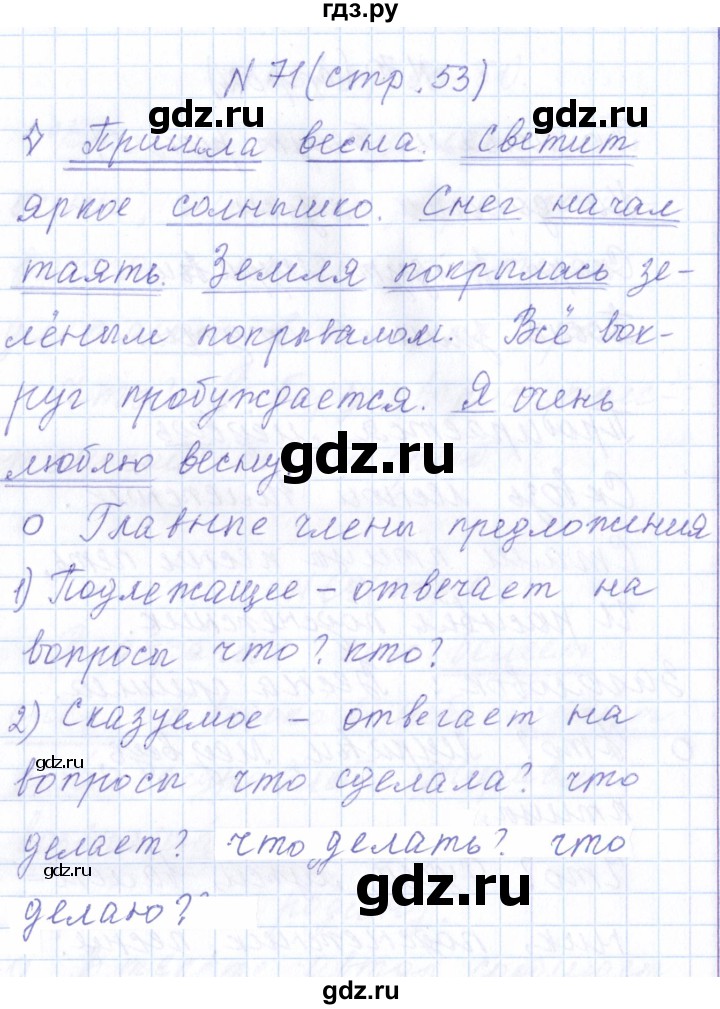 гдз.ру
N 71 (стр. 53)
gdz.ru gdz.ru
Пришла весна. Светит
яркое солнышко. Снег начал
gdz.ru gdz.ru
таять. Земля покрылась зе-
лёным покрывалом. Всё вок-
руг пробуждается. Я очень
люблю весну.
gdz.ru
о Главные члены предложения
1) Подлежащее – отвечает на
вопросы что? кто?
2) Сказуемое – отвегает на
gdz.ru
вопросы что сделала? что
делает? что делать? что
gdz.ru
gdz.ru
делаю?
gdz.ru
gdz.ru